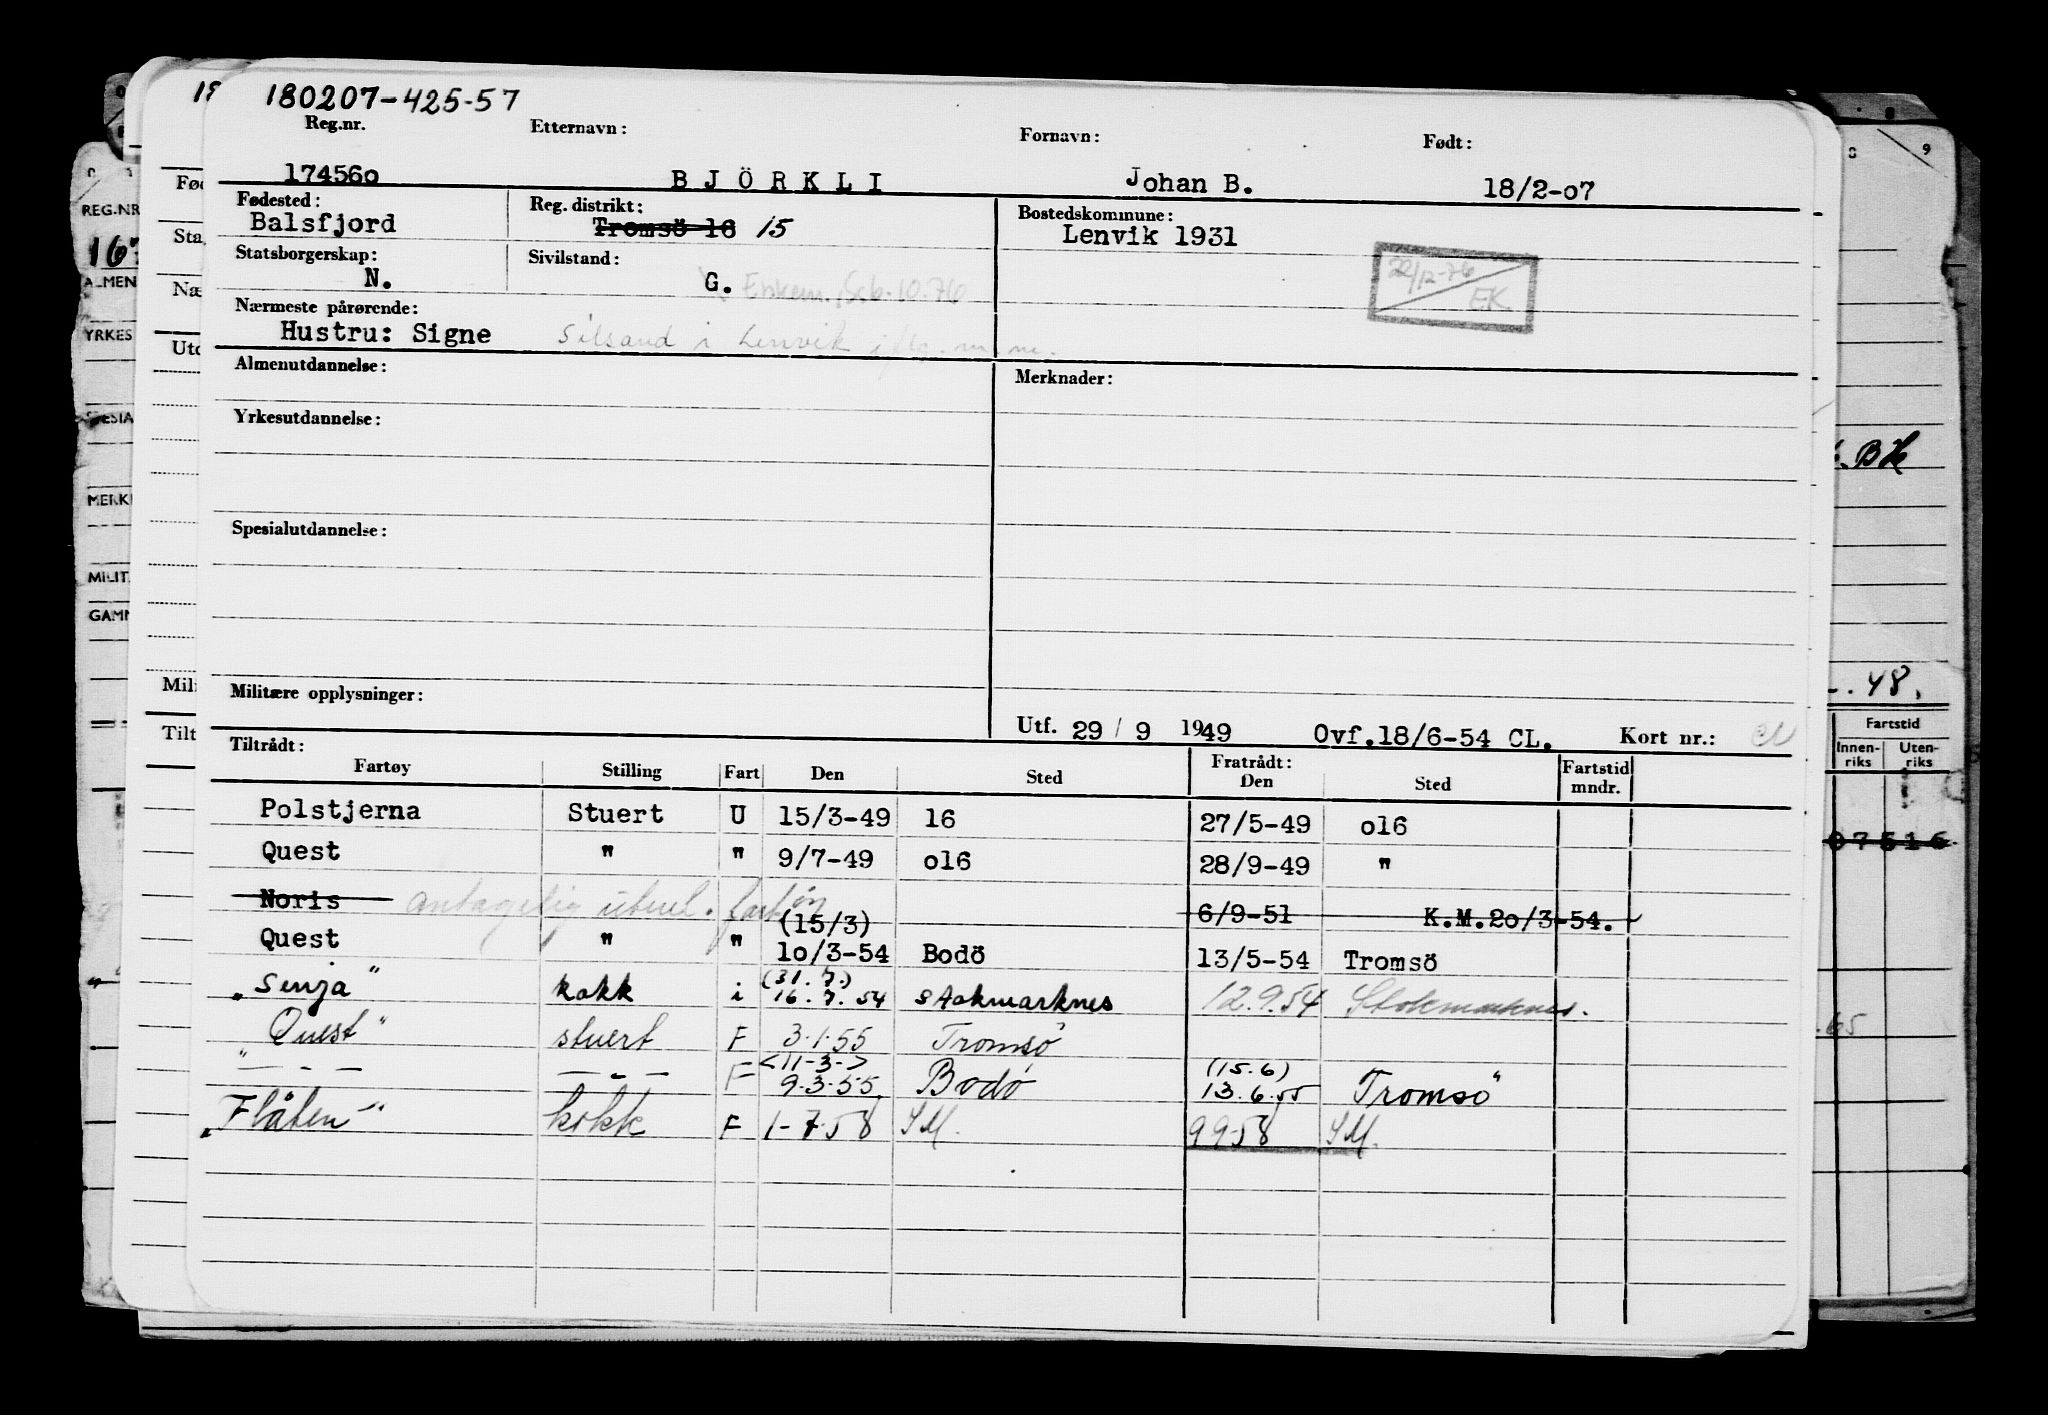 180207-425-57
Reg.nr. Etternavn: Fornavn: Født:
17456o BJÖRKLI Johan B. 18/2-o7
Fødested: Reg. distrikt: Bostedskommune:
Balsfjord Tromsö 16 15 Lenvik 1931
Statsborgerskap: Sivilstand:
N. G. Enkem. 10.76
22/12-76 EK
Nærmeste pårørende:
Hustru: Signe Silsand i Lenvik
Almenutdannelse: Merknader:
Yrkesutdannelse:
Spesialutdannelse:
Militære opplysninger:
Utf. 29 / 9 1949 Ovf.18/6-54 CL. Kort nr.:
Tiltrådt: Fratrådt: Fartstid
Fartøy Stilling Fart Den Sted Den Sted mndr.
Polstjerna Stuert U 15/3-49 16 27/5-49 o16
Quest " " 9/7-49 o16 28/9-49 "
Noris antagelig utenl. fartøy 6/9-51 K.M.2o/3-54.
(15/3)
Quest " " 1o/3-54 Bodö 13/5-54 Tromsö
(31.7.)
"Senja" kokk i 16.7.54 Stokmarknes 12.9.54 Stokmarknes.
"Quest" stuert F 3.1.55 Tromsö
<11-3-> (15.6)
" - - - - - - F 9.3.55. Bodö 13.6.55 Tromsö
"Flåten" kokk F 1-7.58 SM. 9958 SM.
REG.NR
ALMEN
YRKES
SPESIA
MERK
MILIT.
GAMM
Fød
Sta
Næ
Utd
Mili
Tilt
8 9
. BH
. 48.
Fartstid
Innen-riks Uten-riks
07516
.65